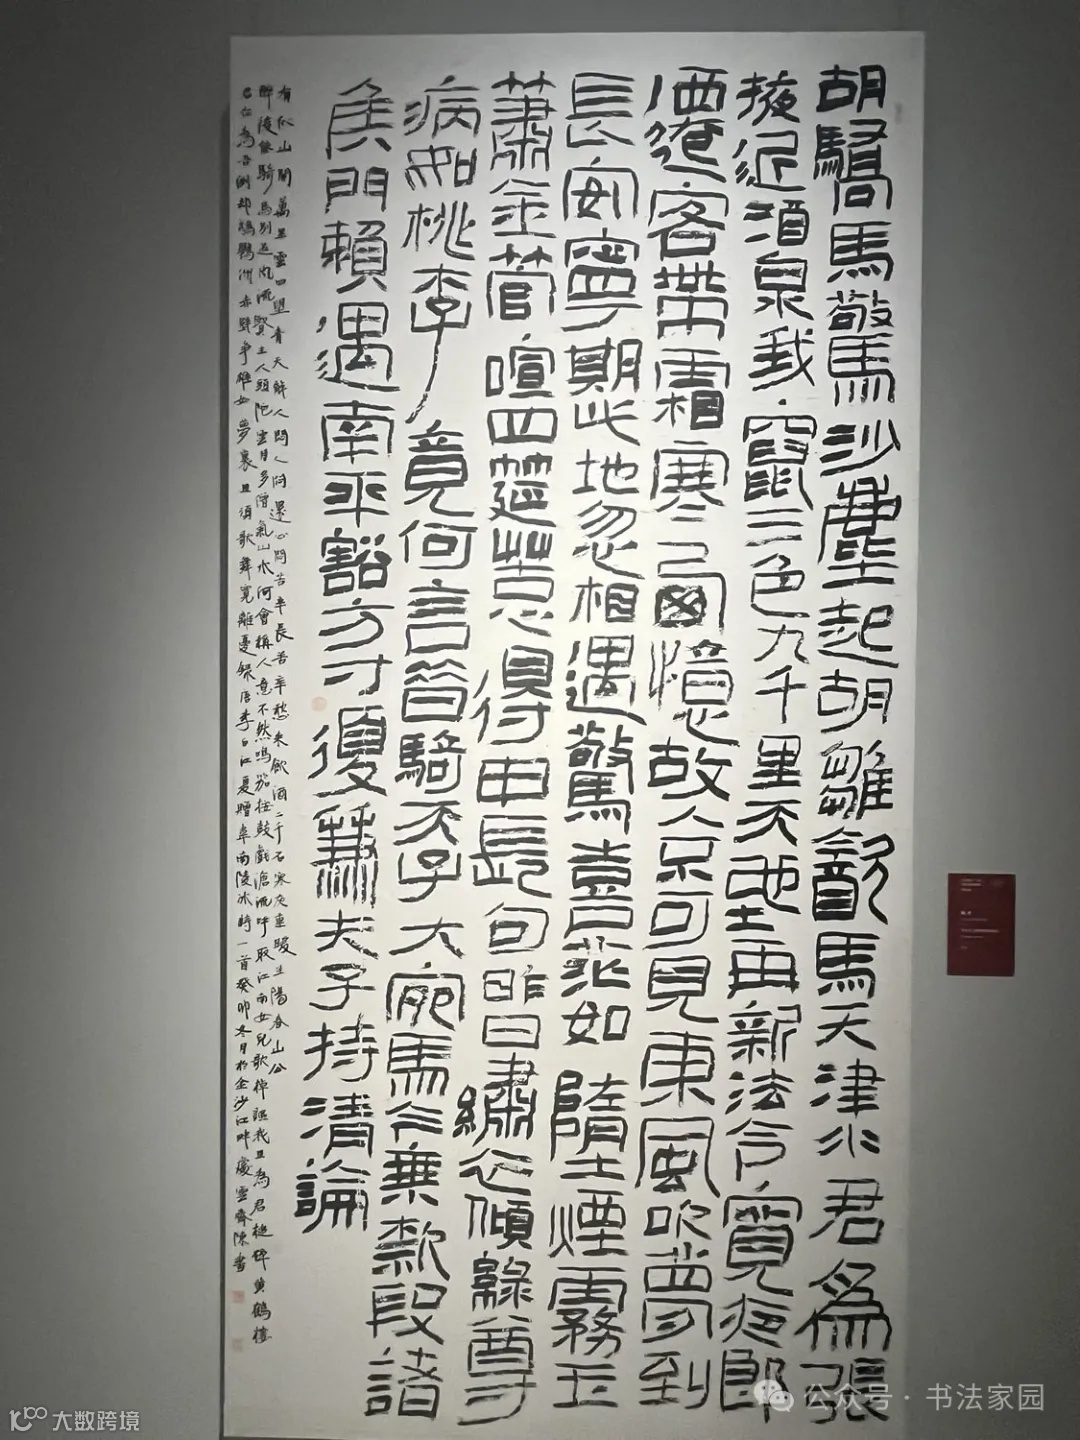 胡驕馬驚沙塵起胡雛飲馬天津水君爲張
掖近酒泉我竄三色九千里天地再新法令寬夜郎
遷客帶霜寒西憶故人不可見東風吹夢到
長安寧期此地忽相遇驚喜茫如墮煙霧玉
簫金管喧四筵苦心得申長句昨日繡衣傾綠尊
病如桃李竟何言昔騎天子大宛馬今乘款段諸
侯門賴遇南平豁方寸復兼夫子持清論
有似山開萬里雲四望青天解人悶人悶還心悶苦辛長苦辛愁來飲酒二千石寒灰重暖生陽春山公
醉後能騎馬別是風流賢主人頭陀雲月多僧氣山水何曾稱人意不然鳴笳按鼓戲滄流呼取江南女兒歌棹謳我且為君槌碎黃鶴樓
君亦為吾倒却鸚鵡洲赤壁爭雄如夢裏且須歌舞寬離憂錄唐李白江夏贈韋南陵冰詩一首癸卯冬月於金沙江畔雲齋陳書
公众号·书法家园
大数跨境